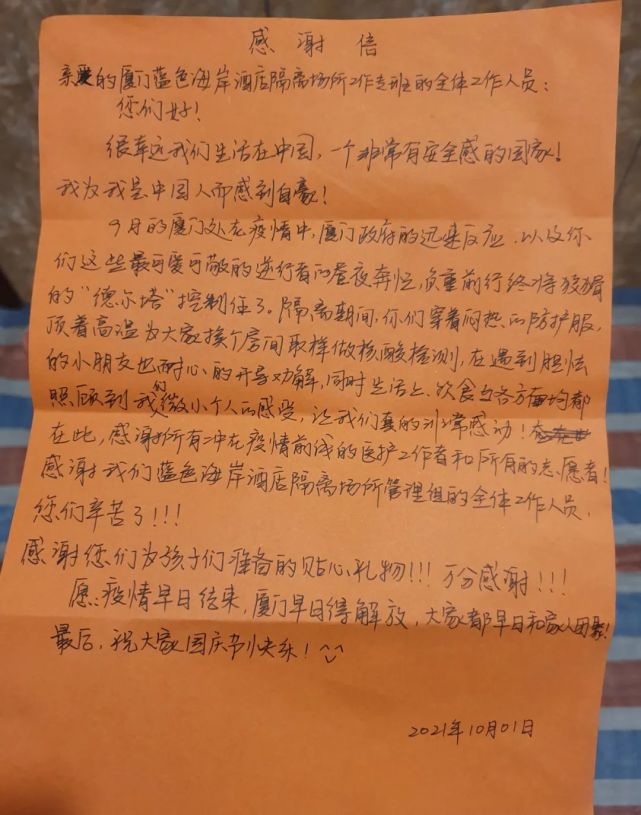 感谢信
亲爱的厦门蓝色海岸酒店隔离场所工作专班的全体工作人员：
您们好！
很幸运我们生活在中国，一个非常有安全感的国家！
我为我是中国人而感到自豪！
9月的厦门处在疫情中，厦门政府的迅速反应，以及你
们这些最可爱可敬的逆行者的昼夜奔忙，负重前行终将猖獗
的“德尔塔”控制住了。隔离期间，你们穿着闷热的防护服，
顶着高温为大家挨个房间取样做核酸检测，在遇到胆怯
的小朋友也耐心的开导劝解，同时生活上、饮食与各方面均都
照顾到我们微小个人的感受，让我们真的非常感动！
在此，感谢所有冲在疫情前线的医护工作者和所有的志愿者！
感谢我们蓝色海岸酒店隔离场所管理组的全体工作人员，
您们辛苦了！！！
感谢您们为孩子们准备的贴心礼物！！！万分感谢！！！
愿疫情早日结束，厦门早日得解放，大家都早日和家人团聚！
最后，祝大家国庆节快乐！
2021年10月01日